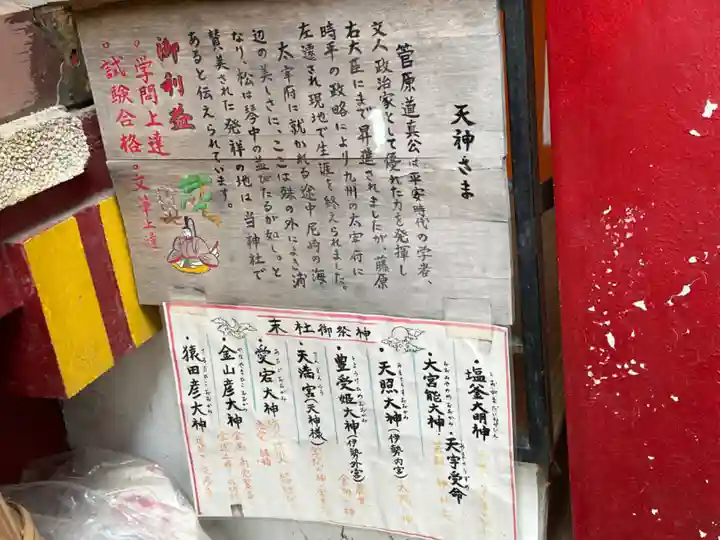 天神さま
菅原道真公は平安時代の学者、
文人政治家として優れた力を発揮し
右大臣にまで昇進されましたが、藤原
時平の政略により九州の太宰府に
左遷され現地で生涯を終えられました。
太宰府に就かれる途中尼崎の海
辺の美しさに、ここは殊の外によき浦
なり、松は琴中の並びたるが如し。と
賛美された発祥の地は当神社で
あると伝えられています。
御利益
。学問上達
。試験合格。文筆上達
末社御祭神
・塩釜大明神
・天宇受命
・大宮能大神
・天照大神(伊勢内宮)
・豊受姫大神(伊勢外宮)
・天満宮(天神様)
・愛宕大神
・金山彦大神
・猿田彦大神